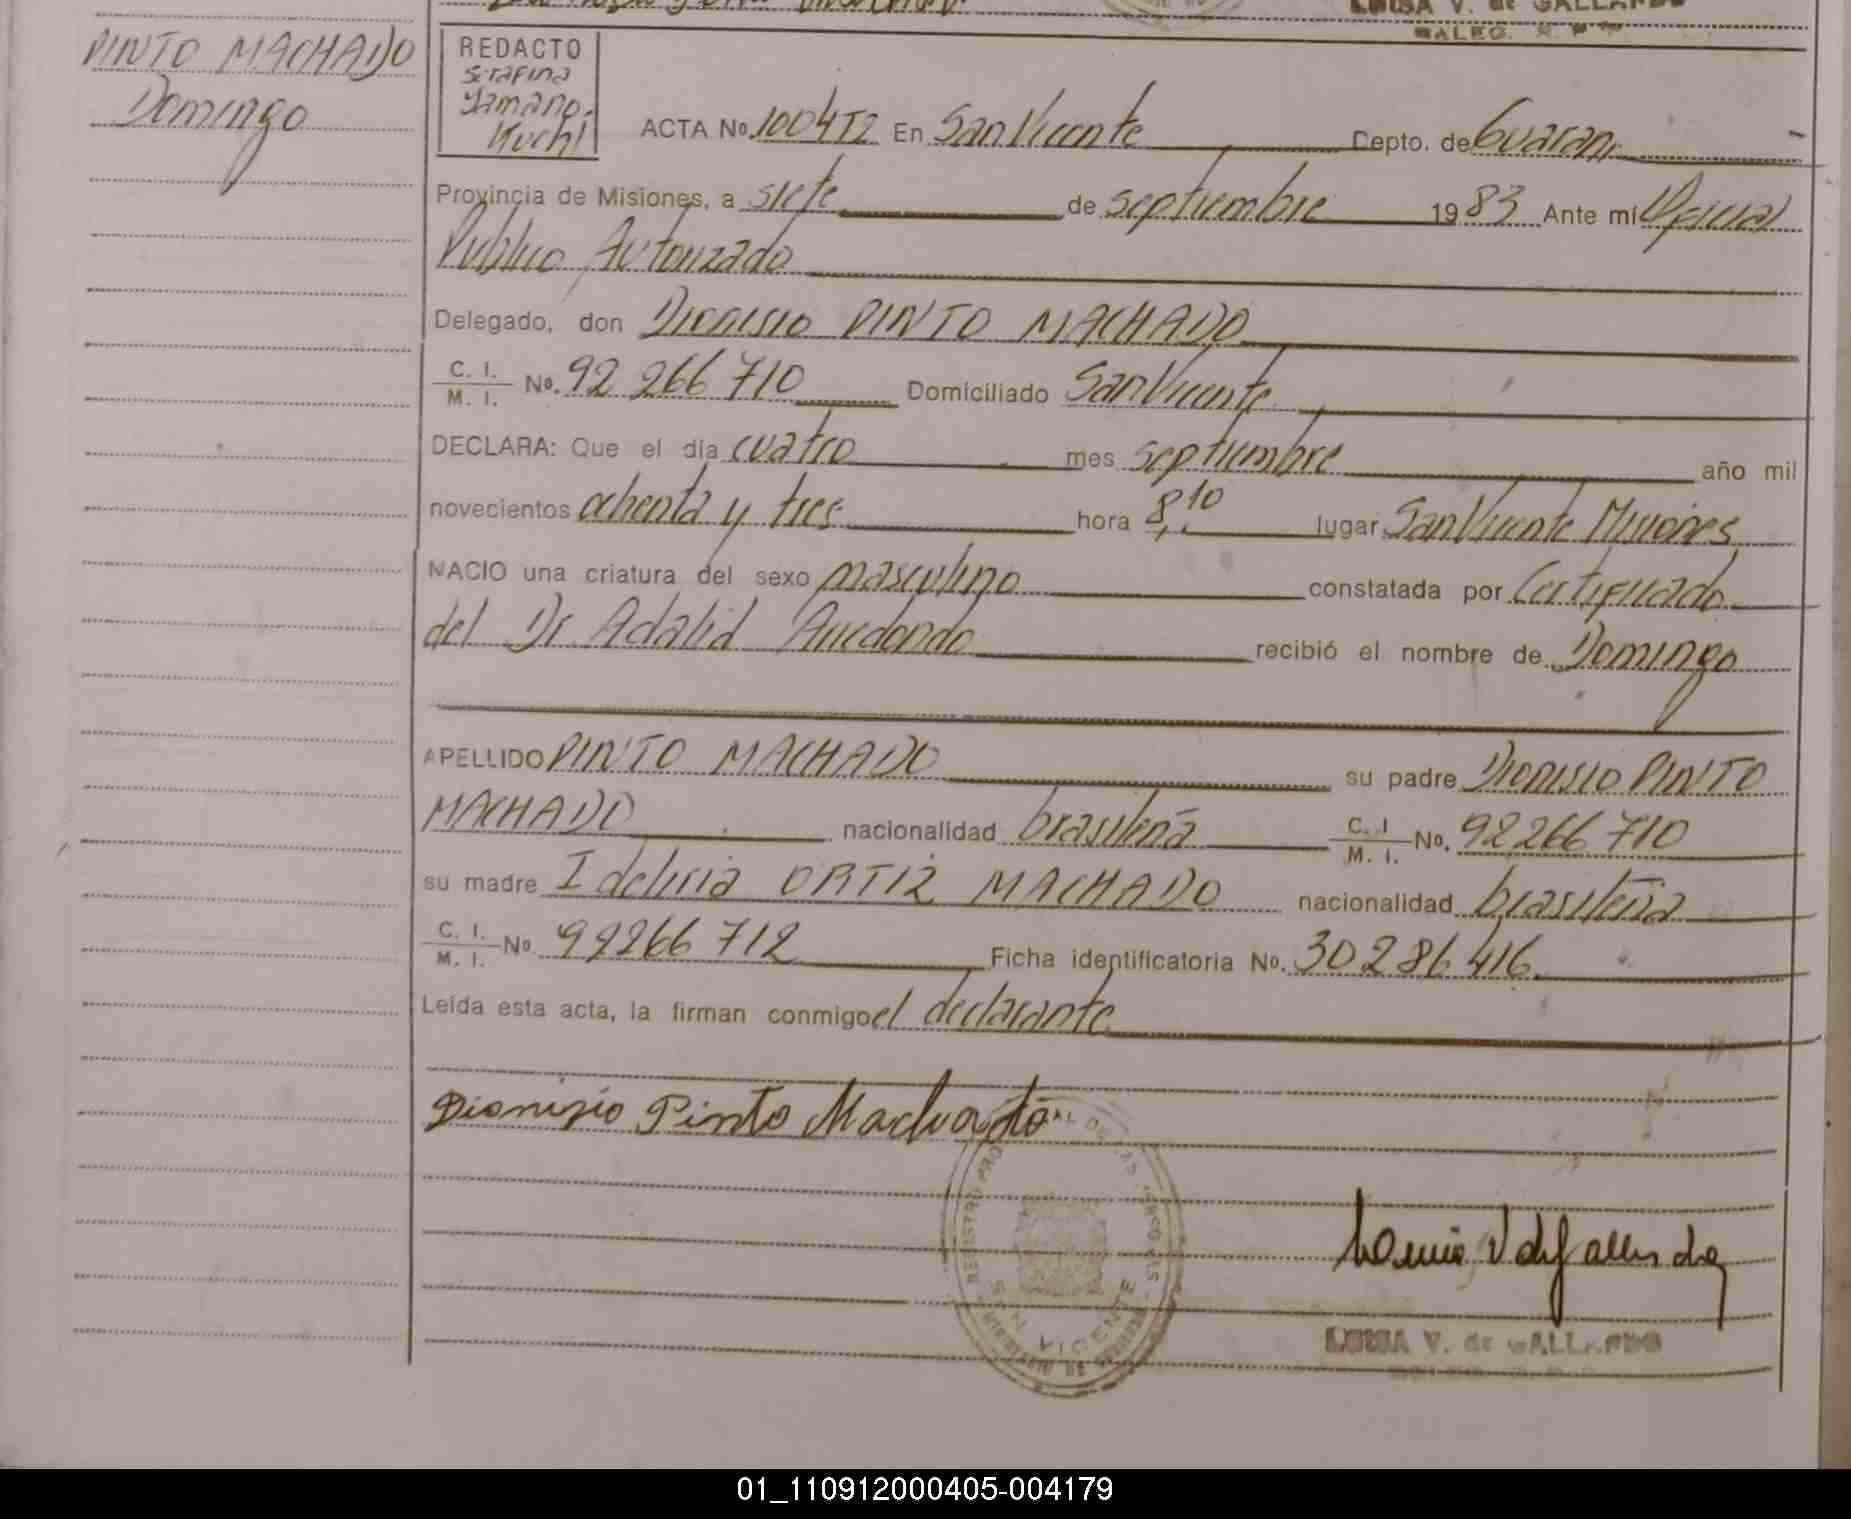 LUISA V. de GALLARDO
PINTO MACHADO
Domingo
REDACTO
Serafina
Yamano.
Kuchl
ACTA No. 1004T2 En San Vicente Depto. de Guarani
Provincia de Misiones, a siete de septiembre 1983 Ante mi Oficial
Publico Autorizado
Delegado, don Dionisio PINTO MACHADO
C. I. / M. I. No. 92 266 710 Domiciliado San Vicente
DECLARA: Que el día cuatro mes septiembre año mil
novecientos ochenta y tres hora 8,10 lugar San Vicente Misiones
NACIO una criatura del sexo masculino constatada por Certificado
del Dr Adalid Arredondo recibió el nombre de Domingo
APELLIDO PINTO MACHADO su padre Dionisio PINTO
MACHADO nacionalidad brasileña C. I / M. I. No. 92266 710
su madre Idelicia ORTIZ MACHADO nacionalidad brasileña
C. I. / M. I. No. 92266 712 Ficha identificatoria No. 30 286 416
Leída esta acta, la firman conmigo el declarante
Dionisio Pinto Machado
REGISTRO PROVINCIAL DE LAS PERSONAS
SAN VICENTE
LUISA V. de GALLARDO
01_110912000405-004179